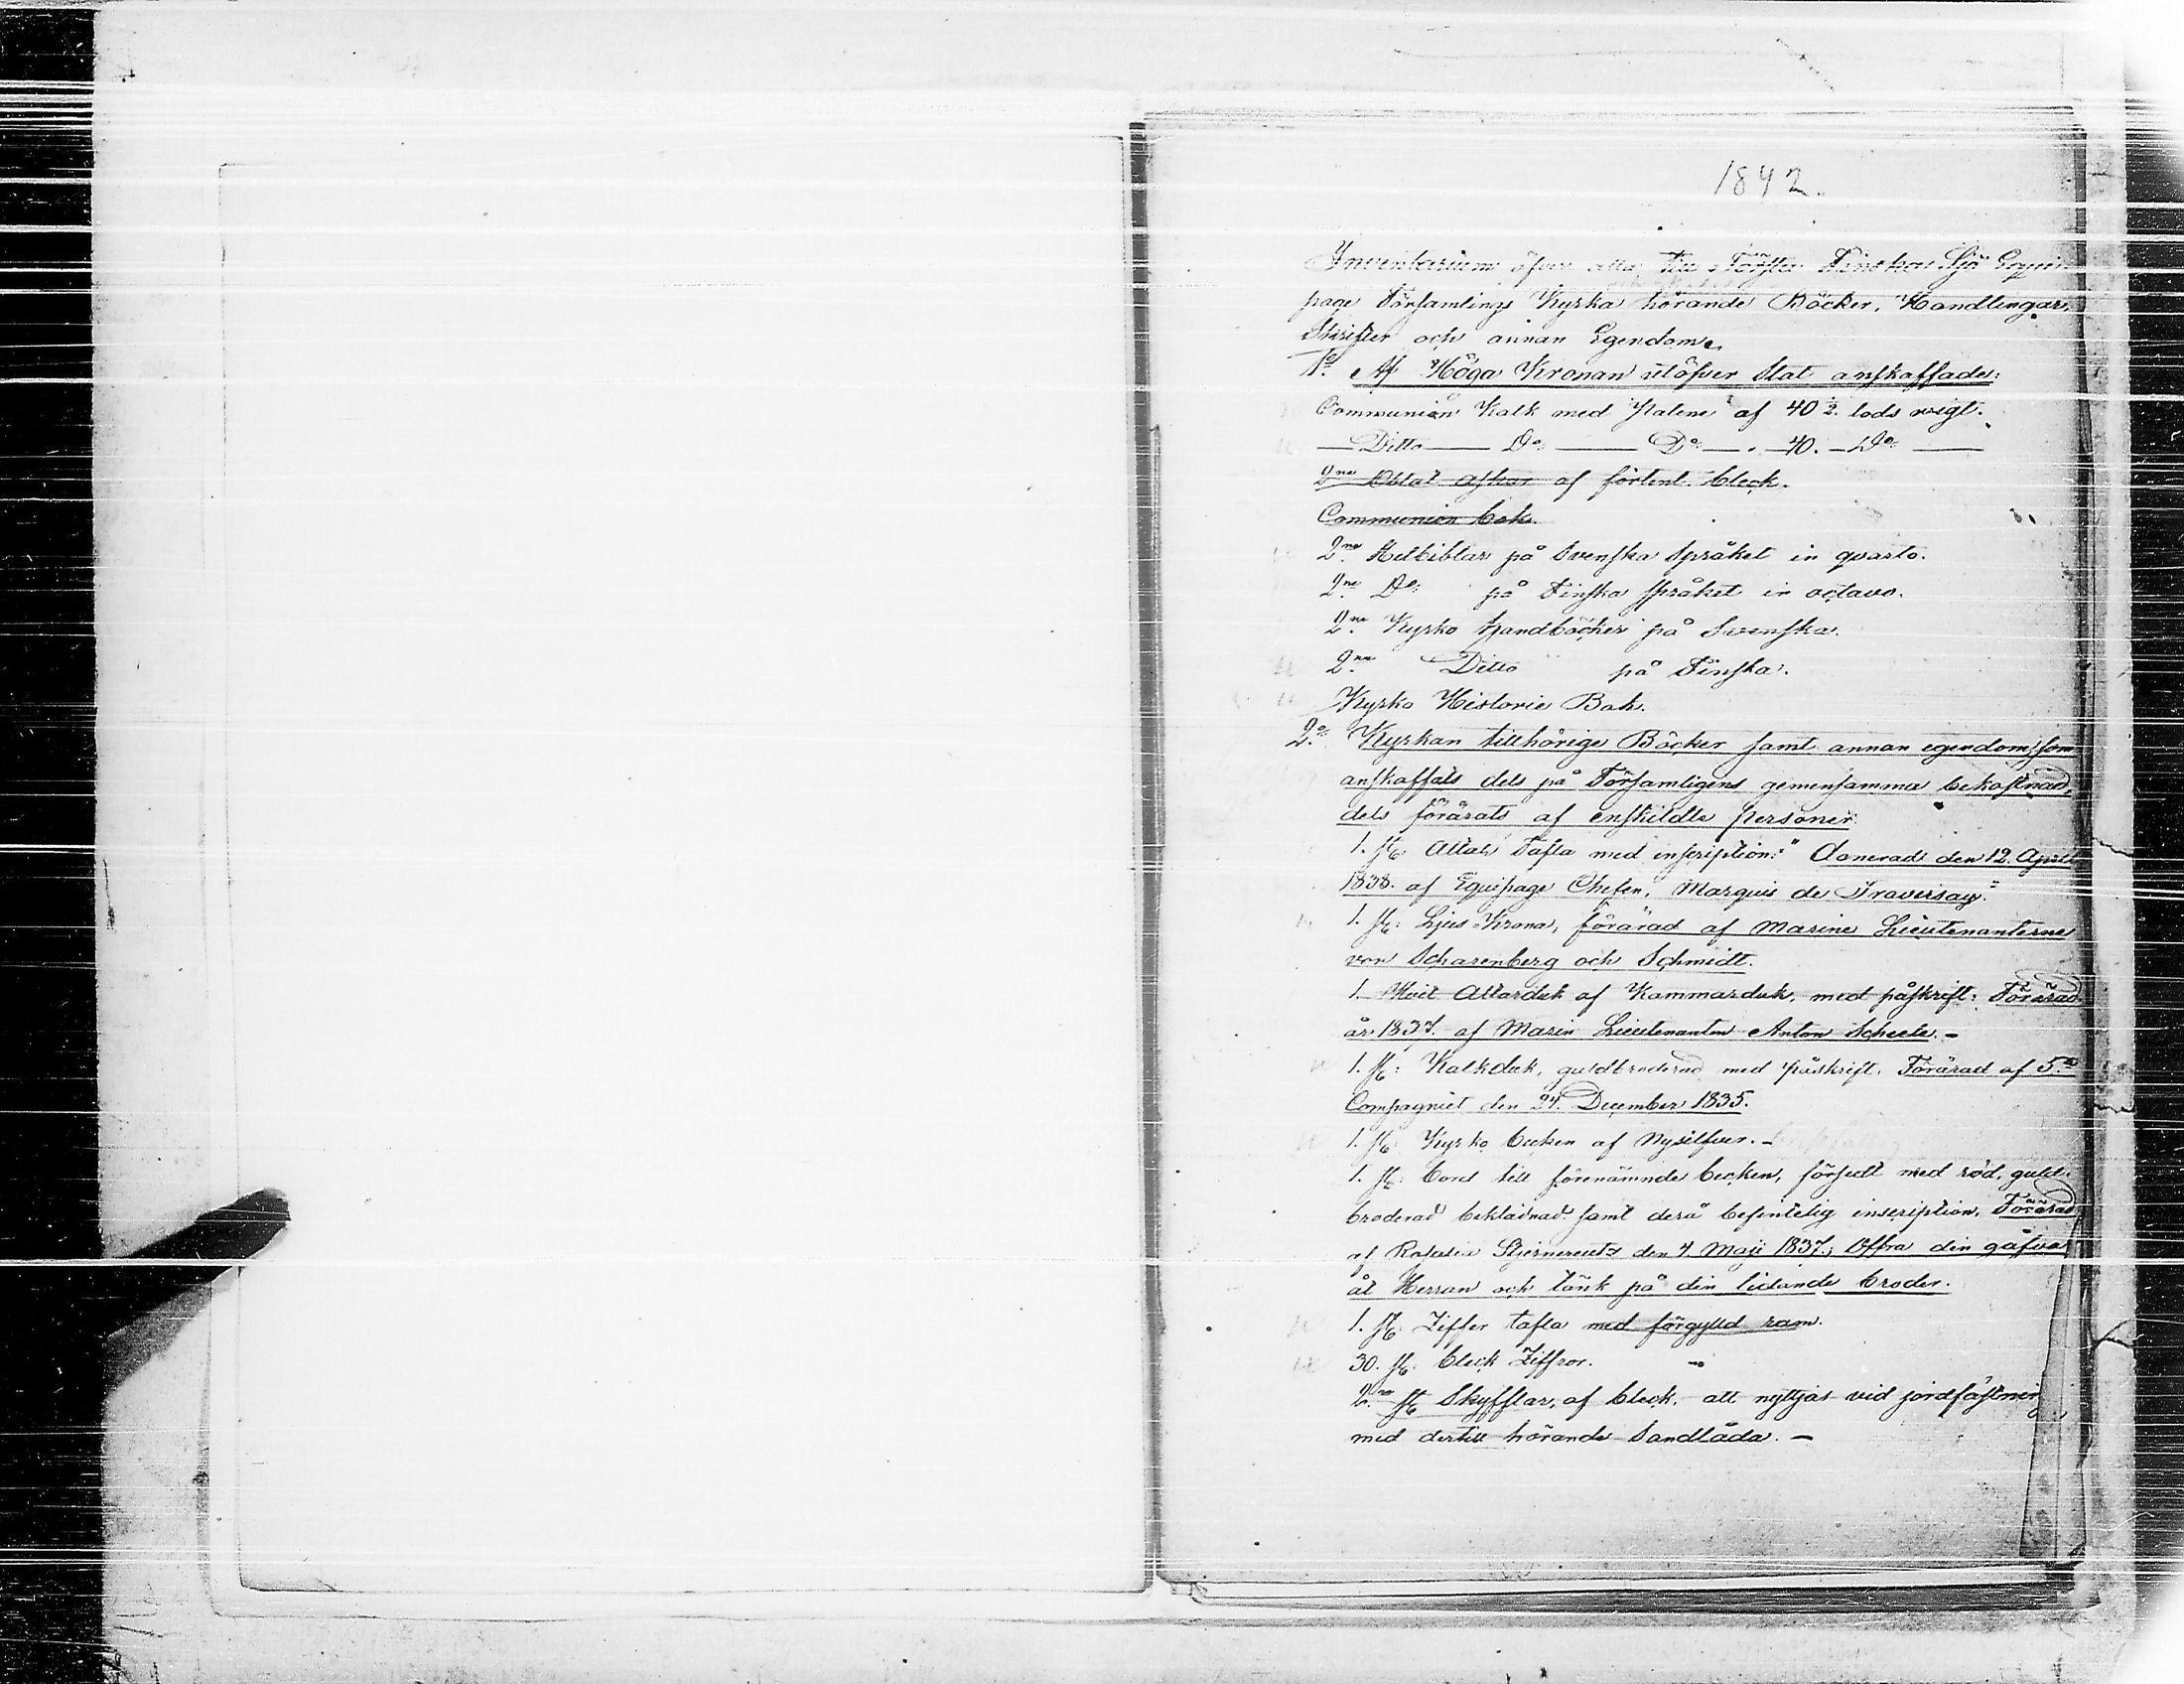 1842.
Inventarium öfver alla, till Första Finska Sjö Equi-
page Församlings Kyrka hörande Böcker, Handlingar,
Skrifter och annan Egendom.
1º Af Höga Kronan utöfver Stat anskaffade:
Communion Kalk med Paten af 40 ½ lods wigt.
— Ditto — Dº — Dº — 40. — Dº —
2ne Oblat askar af förtent bleck.
Communion bok.
2ne Helbiblar på Svenska Språket in qvarto.
2ne Dº på Finska Språket in octavo.
2ne Kyrko Handböcker på Svenska.
2ne Ditto på Finska.
Kyrko Historie Bok.
2º Kyrkan tillhörige Böcker samt annan egendom, som
anskaffats dels på Församligens gemensamma bekostnad,
dels förärats af enskildte personer:
1. st: Altar Tafla med inscription: "Donerad den 12. April
1838. af Equipage Chefen, Marquis de Traversay."
1. st: Ljus-Krona, förärad af Marine Lieutenanterne
von Scharenberg och Schmidt.
1. Hvit Altarduk af Kammarduk, med påskrift: Förärad
år 1837. af Marin Lieutenanten Anton Scheele. -
1. st: Kalkduk, guldbroderad med påskrift. Förärad af 5.
Compagniet den 24. December 1835.
1. st: Kyrko becken af Nysilfver. -
1. st: bord till förenämnde becken, försedt med röd, guld-
broderad beklädnad samt derå befintelig inscription. Förärad
af Rosalia Stjernereutz den 4 Maji 1837., Offra din gåfva
åt Herran och tänk på din lidande broder.
1. st: Ziffer tafla med förgylld ram.
30. st: bleck Ziffror.
2ne st Skyfflar, af bleck, att nyttjas vid jordfästning
med dertill hörande Sandlåda. -